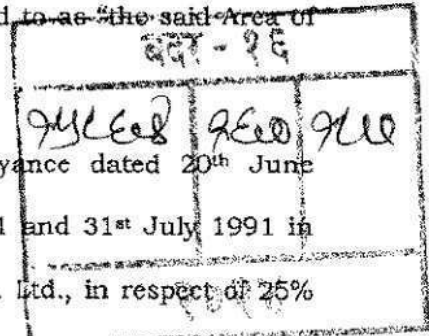 d to as "the said Area of
बदर - १६
yance dated 20th June
1 and 31st July 1991 in
. Ltd., in respect of 25%